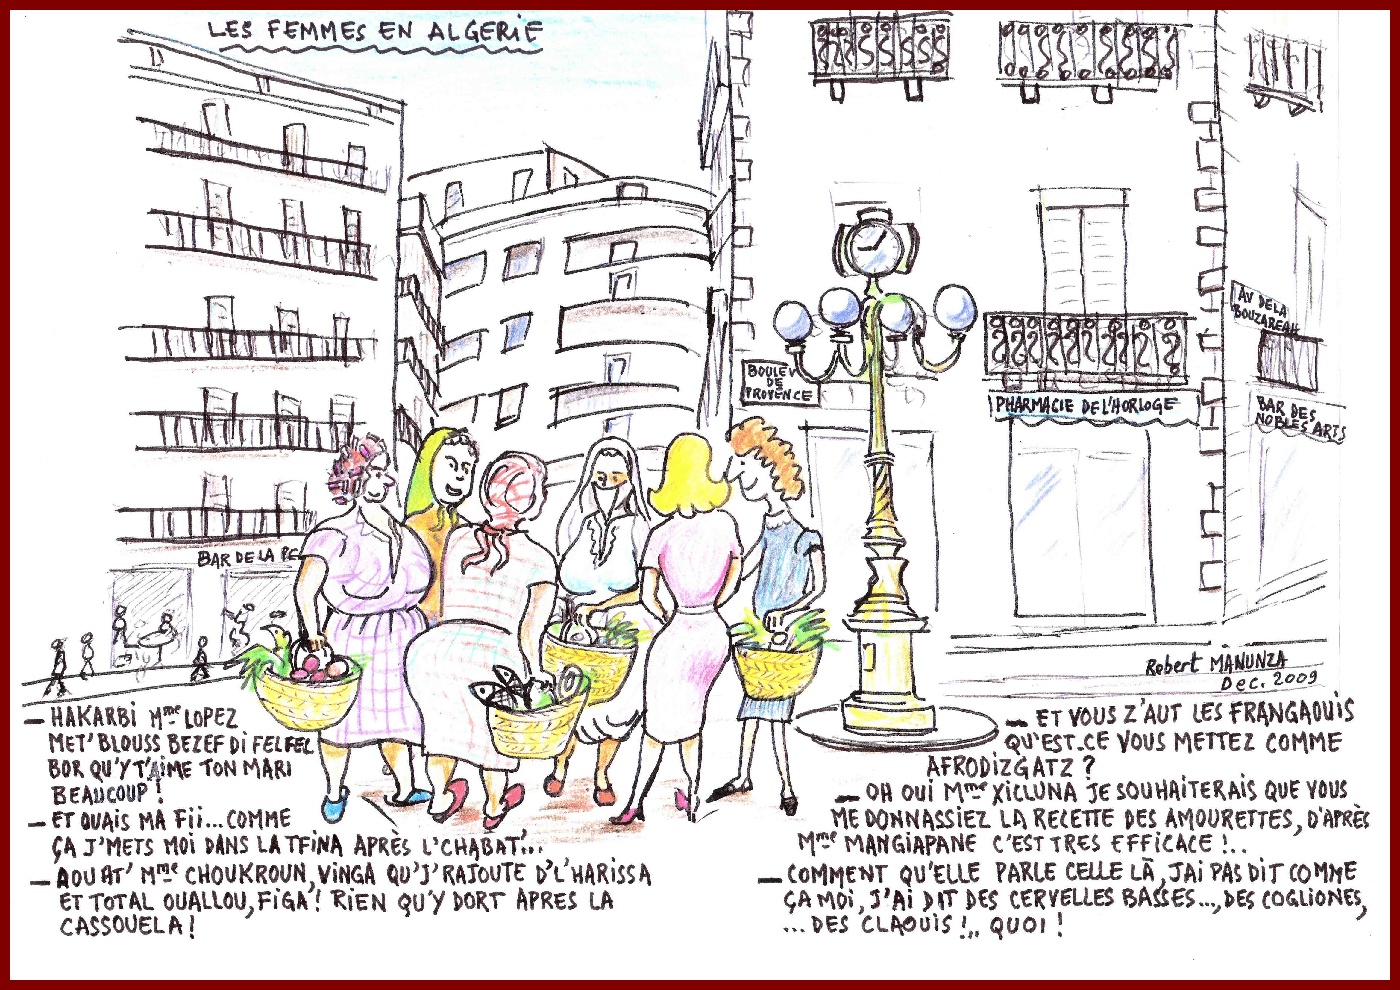 LES FEMMES EN ALGERIE
AV DE LA
BOUZAREAH
BOULEV
DE
PROVENCE
PHARMACIE DE L'HORLOGE
BAR DES
NOBLES ARTS
BAR DE LA PE
Robert MANUNZA
Dec. 2009
— HAKARBI Mme LOPEZ
MET' BLOUSS BEZEF DI FELFEL
BOR QU'Y T'AIME TON MARI
BEAUCOUP !
— ET OUAIS MA Fii... COMME
ÇA J'METS MOI DANS LA TFINA APRÈS L'CHABAT'...
— AOUAT' Mme CHOUKROUN, VINGA QU'J'RAJOUTE D'L'HARISSA
ET TOTAL OUALLOU, FIGA ! RIEN QU'Y DORT APRES LA
CASSOUELA !
— ET VOUS Z'AUT LES FRANGAOUIS
QU'EST.CE VOUS METTEZ COMME
AFRODIZGATZ ?
— OH OUI Mme XICLUNA JE SOUHAITERAIS QUE VOUS
ME DONNASSIEZ LA RECETTE DES AMOURETTES, D'APRÈS
Mme MANGIAPANE C'EST TRES EFFICACE !..
— COMMENT QU'ELLE PARLE CELLE LÀ, J'AI PAS DIT COMME
ÇA MOI, J'AI DIT DES CERVELLES BASSES..., DES COGLIONES,
... DES CLAOUIS !.. QUOI !